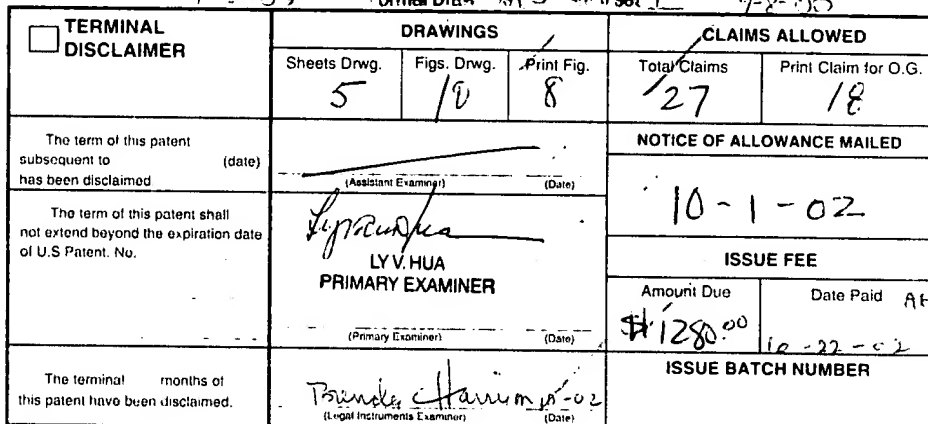 TERMINAL
DISCLAIMER
DRAWINGS
CLAIMS ALLOWED
Sheets Drwg.
Figs. Drwg.
Print Fig.
Total Claims
Print Claim for O.G.
5
8
27
18
The term of this patent
subsequent to (date)
has been disclaimed
(Assistant Examiner) (Date)
NOTICE OF ALLOWANCE MAILED
10-1-02
The term of this patent shall
not extend beyond the expiration date
of U.S Patent. No.
LY V. HUA
PRIMARY EXAMINER
(Primary Examiner) (Date)
ISSUE FEE
Amount Due
Date Paid
$1280.00
10-22-02
The terminal months of
this patent have been disclaimed.
(Legal Instruments Examiner) (Date)
ISSUE BATCH NUMBER